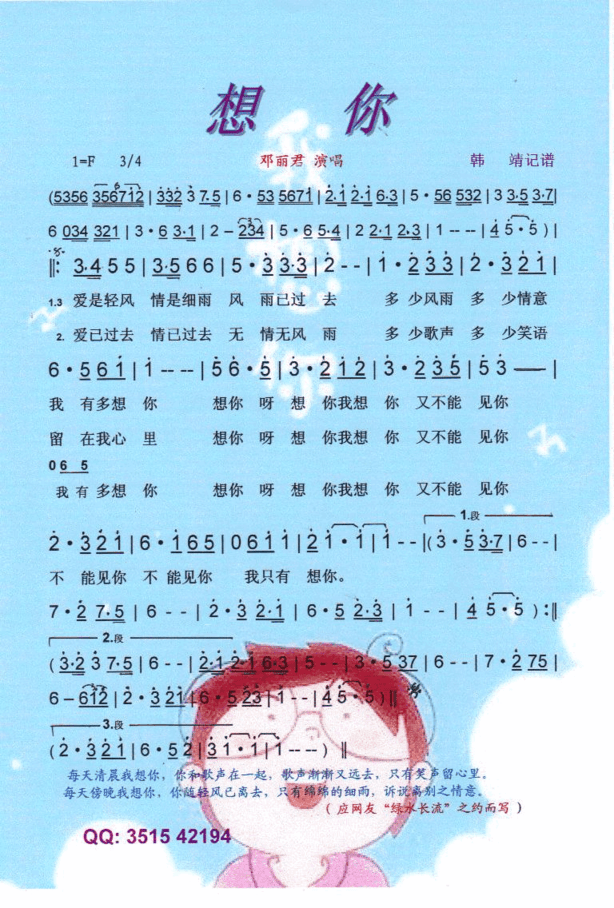 想 你
1=F 3/4 邓丽君 演唱 韩 靖记谱
(5356 356712 | 332 3 7·5 | 6 · 53 5671 | 2·1 2·1 6·3 | 5 · 56 532 | 3 3·5 3·7 |
6 034 321 | 3 · 6 3·1 | 2 – 234 | 5 · 6 5·4 | 2 2·1 2·3 | 1 - - - | 4 5 · 5 ) |
‖: 3·4 5 5 | 3·5 6 6 | 5 · 3 3·3 | 2 - - | 1 · 2 3 3 | 2 · 3 2 1 |
1.3 爱是轻风 情是细雨 风 雨已过 去 多 少风雨 多 少情意
2. 爱已过去 情已过去 无 情无风 雨 多 少歌声 多 少笑语
6 · 5 6 1 | 1 - - - | 5 6 · 5 | 3 · 2 1 2 | 3 · 2 3 5 | 5 3 — |
我 有多想 你 想你 呀 想 你我想 你 又不能 见你
留 在我心 里 想你 呀 想 你我想 你 又不能 见你
0 6 5
我 有 多想 你 想你 呀 想 你我想 你 又不能 见你
1.段
2 · 3 2 1 | 6 · 1 6 5 | 0 6 1 1 | 2 1 · 1 | 1 - - | ( 3 · 5 3·7 | 6 - - |
不 能见你 不 能见你 我只有 想你。
7 · 2 7·5 | 6 - - | 2 · 3 2·1 | 6 · 5 2·3 | 1 - - | 4 5 · 5 ) :‖
2.段
( 3·2 3 7·5 | 6 - - | 2·1 2·1 6·3 | 5 - - | 3 · 5 37 | 6 - - | 7 · 2 75 |
6 – 612 | 2 · 3 21 | 6 · 5 23 | 1 - - | 4 5 · 5 ) ‖
3.段
( 2 · 3 2 1 | 6 · 5 2 | 3 1 · 1 | 1 - - - ) ‖
每天清晨我想你，你和歌声在一起，歌声渐渐又远去，只有笑声留心里。
每天傍晚我想你，你随轻风已离去，只有绵绵的细雨，诉说离别之情意。
（ 应网友“绿水长流”之约而写 ）
QQ: 3515 42194
我想你